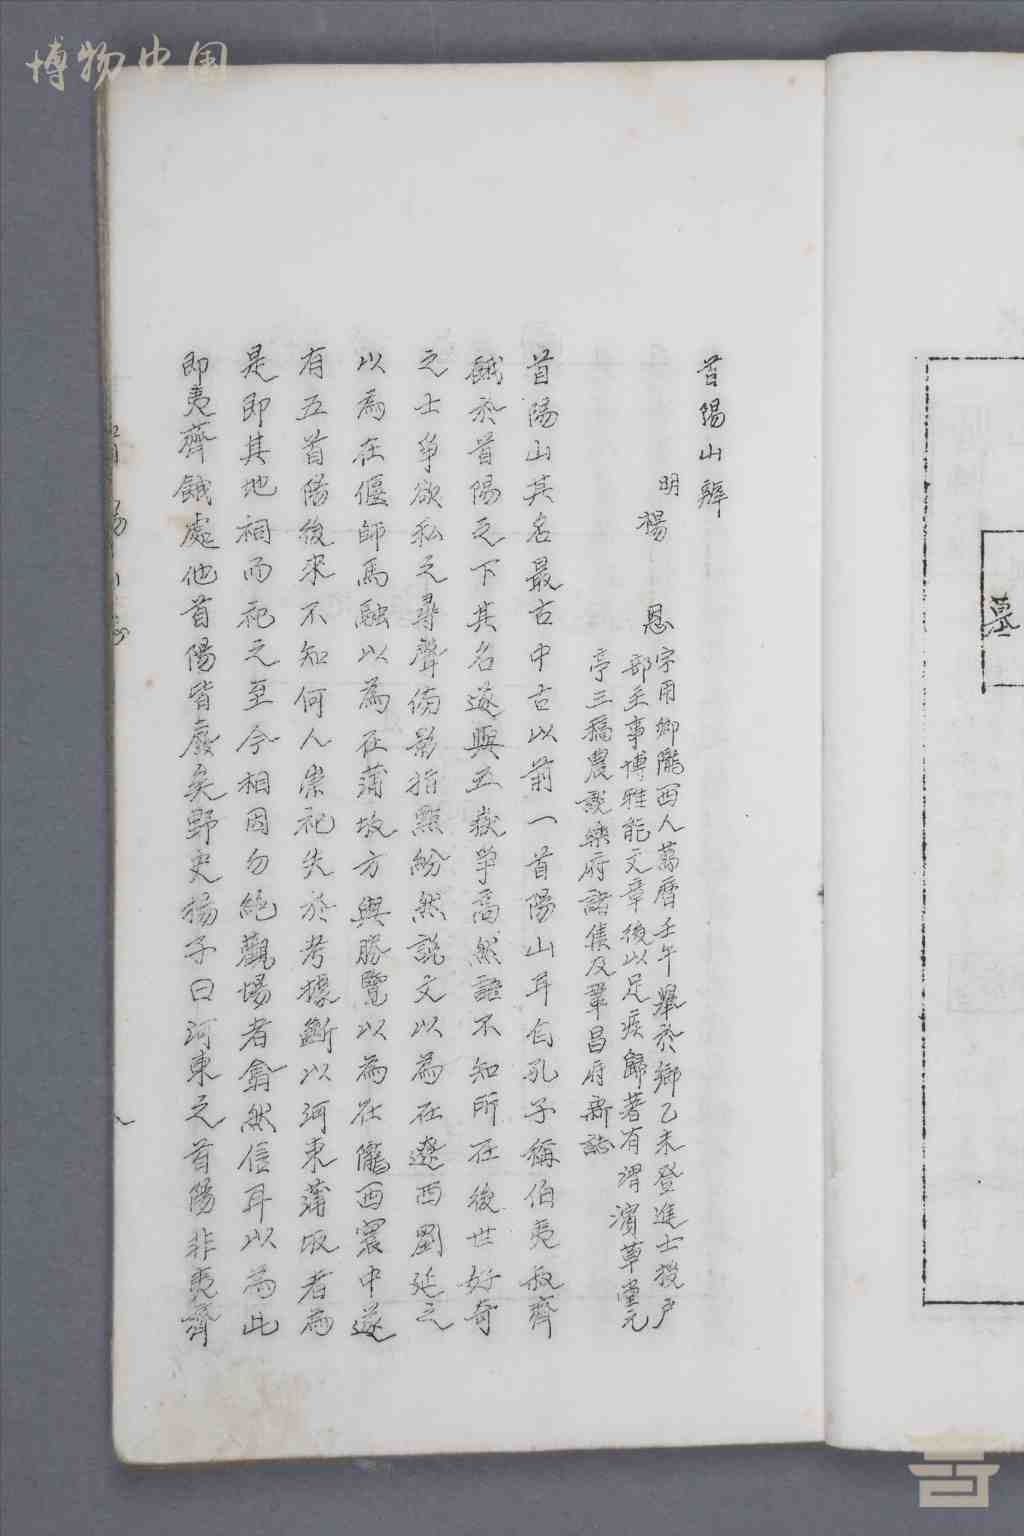 博物中国
墓
首陽山辨
明
楊 恩
字用卿隴西人萬曆壬午舉於鄉乙未登進士授戶
部主事博雅能文章後以足疾歸著有渭濱草堂元
亭三稿農談樂府諸集及鞏昌府新誌
首陽山其名最古中古以前一首陽山耳自孔子稱伯夷叔齊
餓於首陽之下其名遂與五嶽爭高然語不知所在後世好奇
之士爭欲私之尋聲傍影指點紛然說文以為在遼西劉延之
以為在偃師馬融以為在蒲坂方輿勝覽以為在隴西寰中遂
有五首陽後來不知何人崇祀失於考據斷以河東蒲坂者為
是即其地祠而祀之至今相因勿絕觀場者翕然信耳以為此
即夷齊餓處他首陽皆廢矣野史楊子曰河東之首陽非夷齊